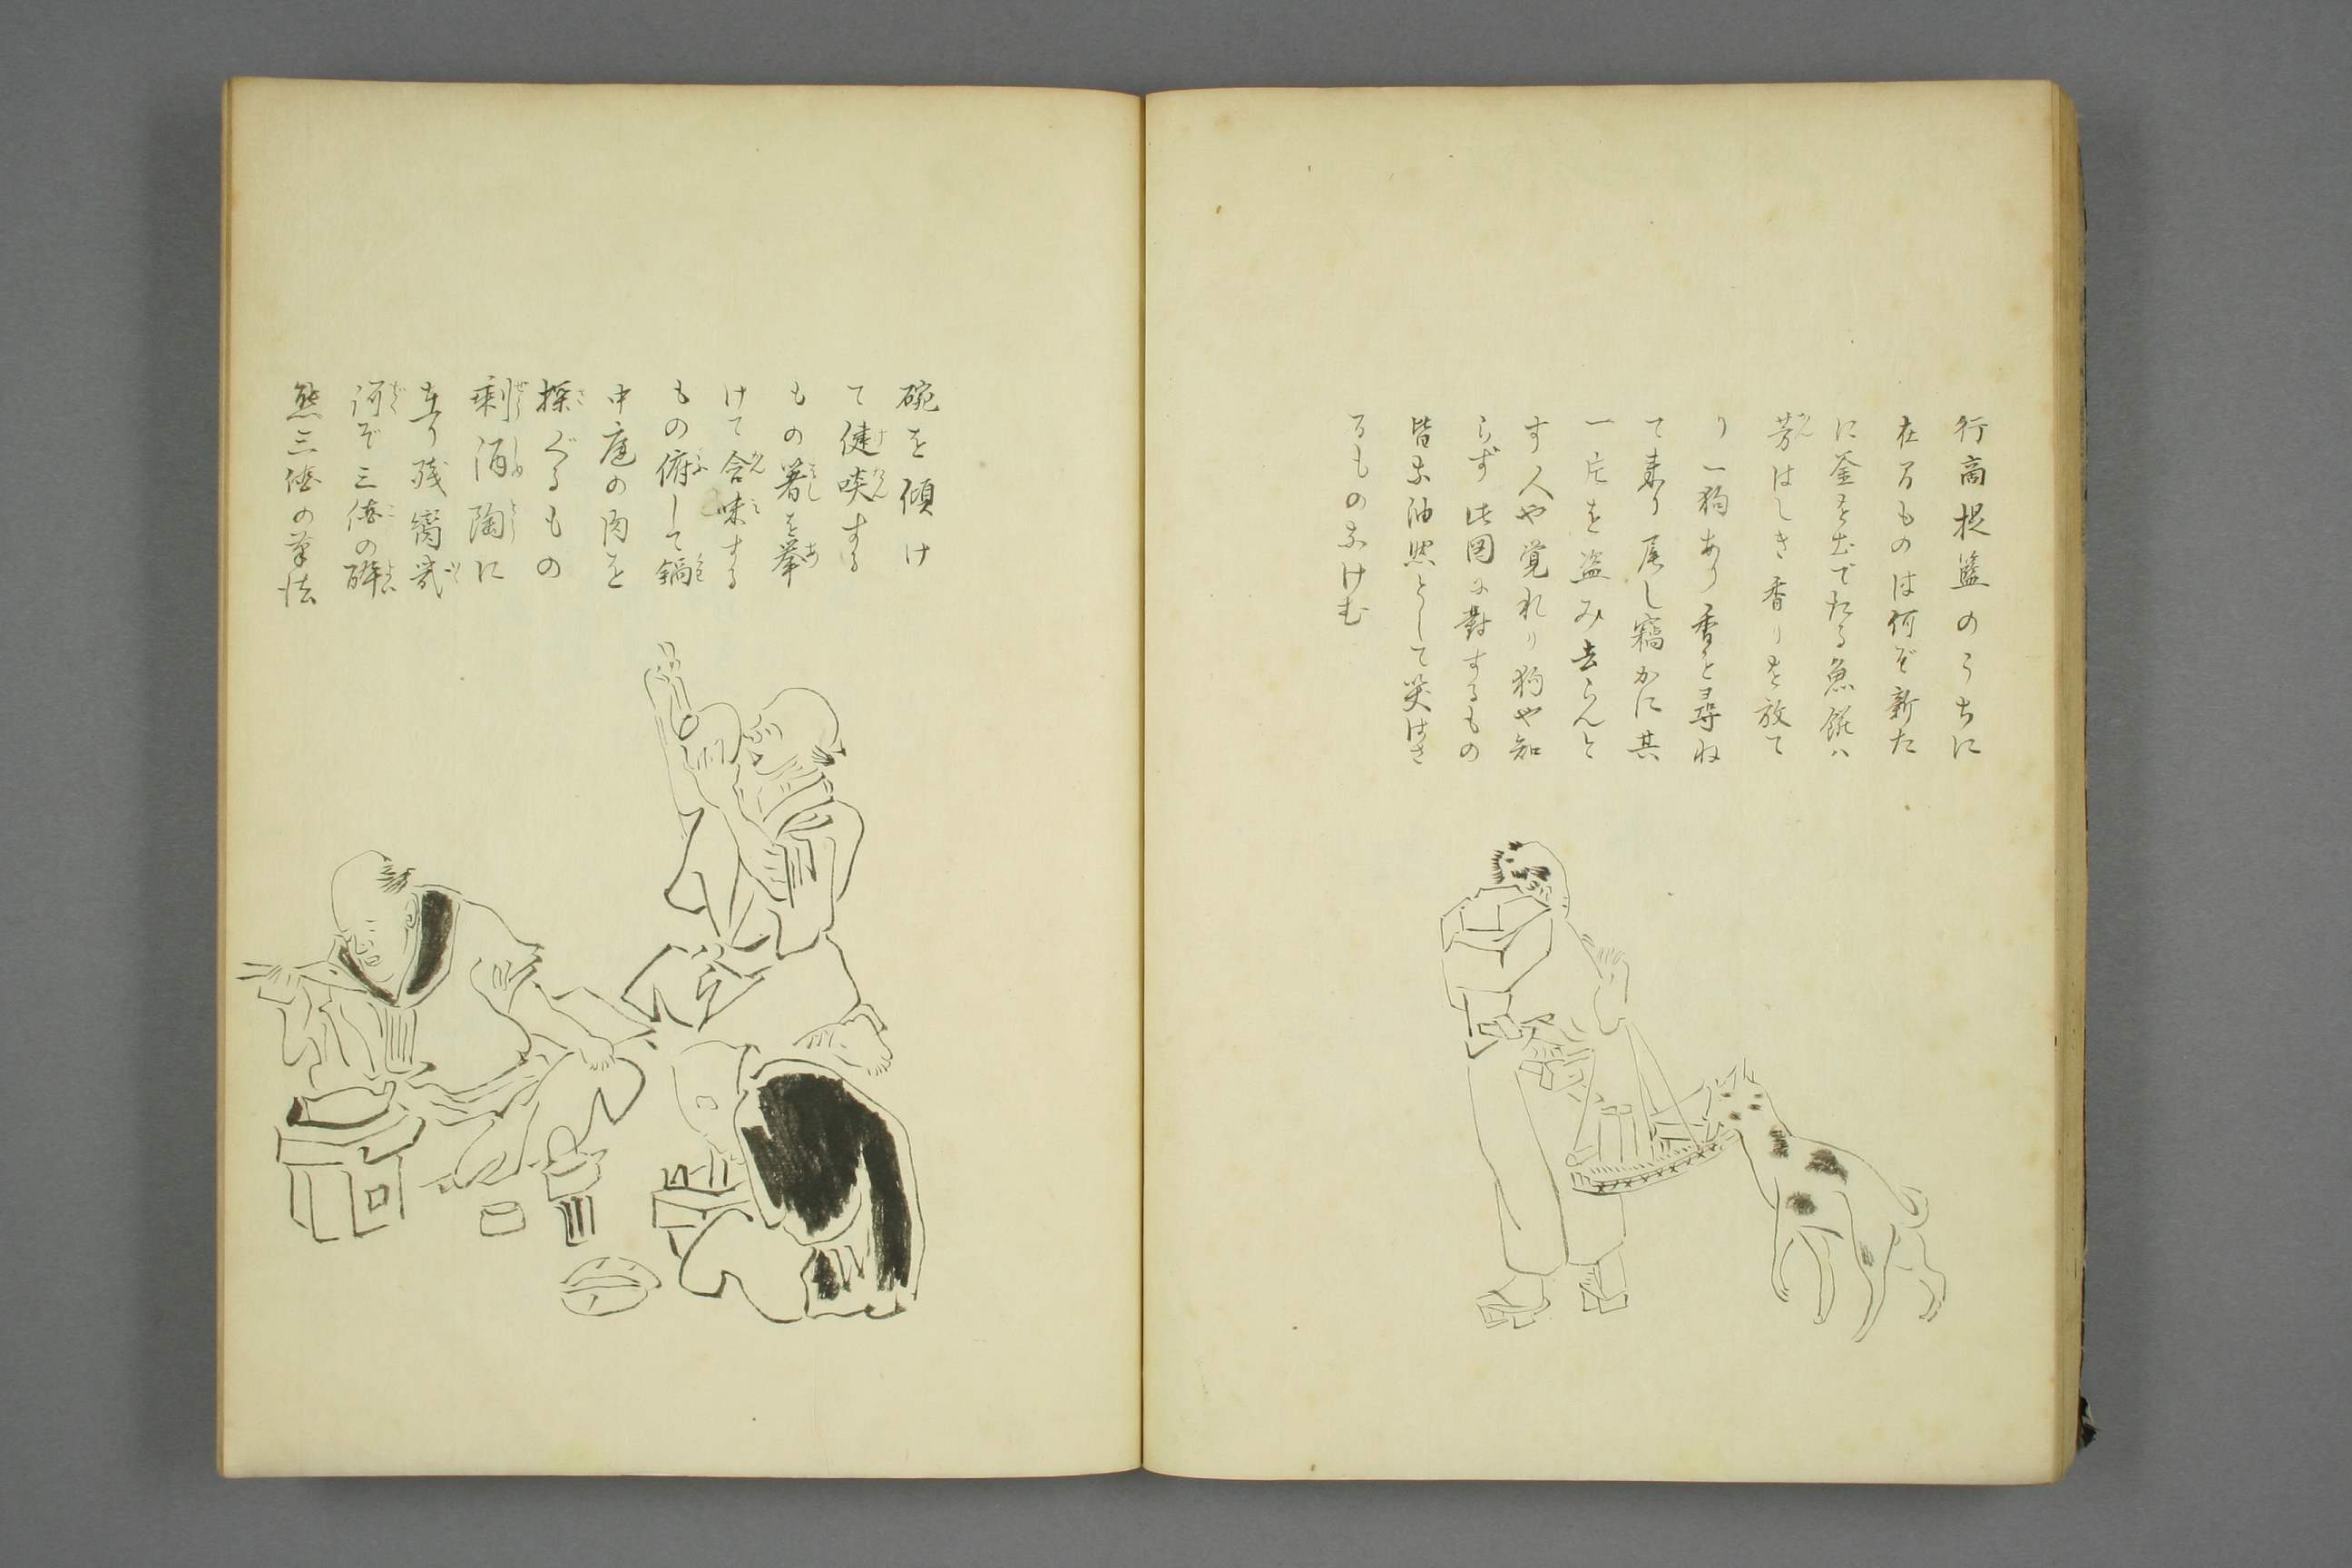 行商提籃のうちに
在るものは何ぞ新た
に釜を出でたる魚饀ハ
芳はしき香りを放て
り一狗あり香を尋ね
て来り尾し竊かに其
一片を盗み去らんと
す人や覚れり狗や知
らず此図に對するもの
皆な油然として笑はざ
るものなけむ
碗を傾け
て健啖する
もの箸を挙
けて含味する
もの俯して鍋
中庖の肉を
探ぐるもの
剰酒陶に
在り残臠
何ぞ三僊の酔
態三僊の筆法